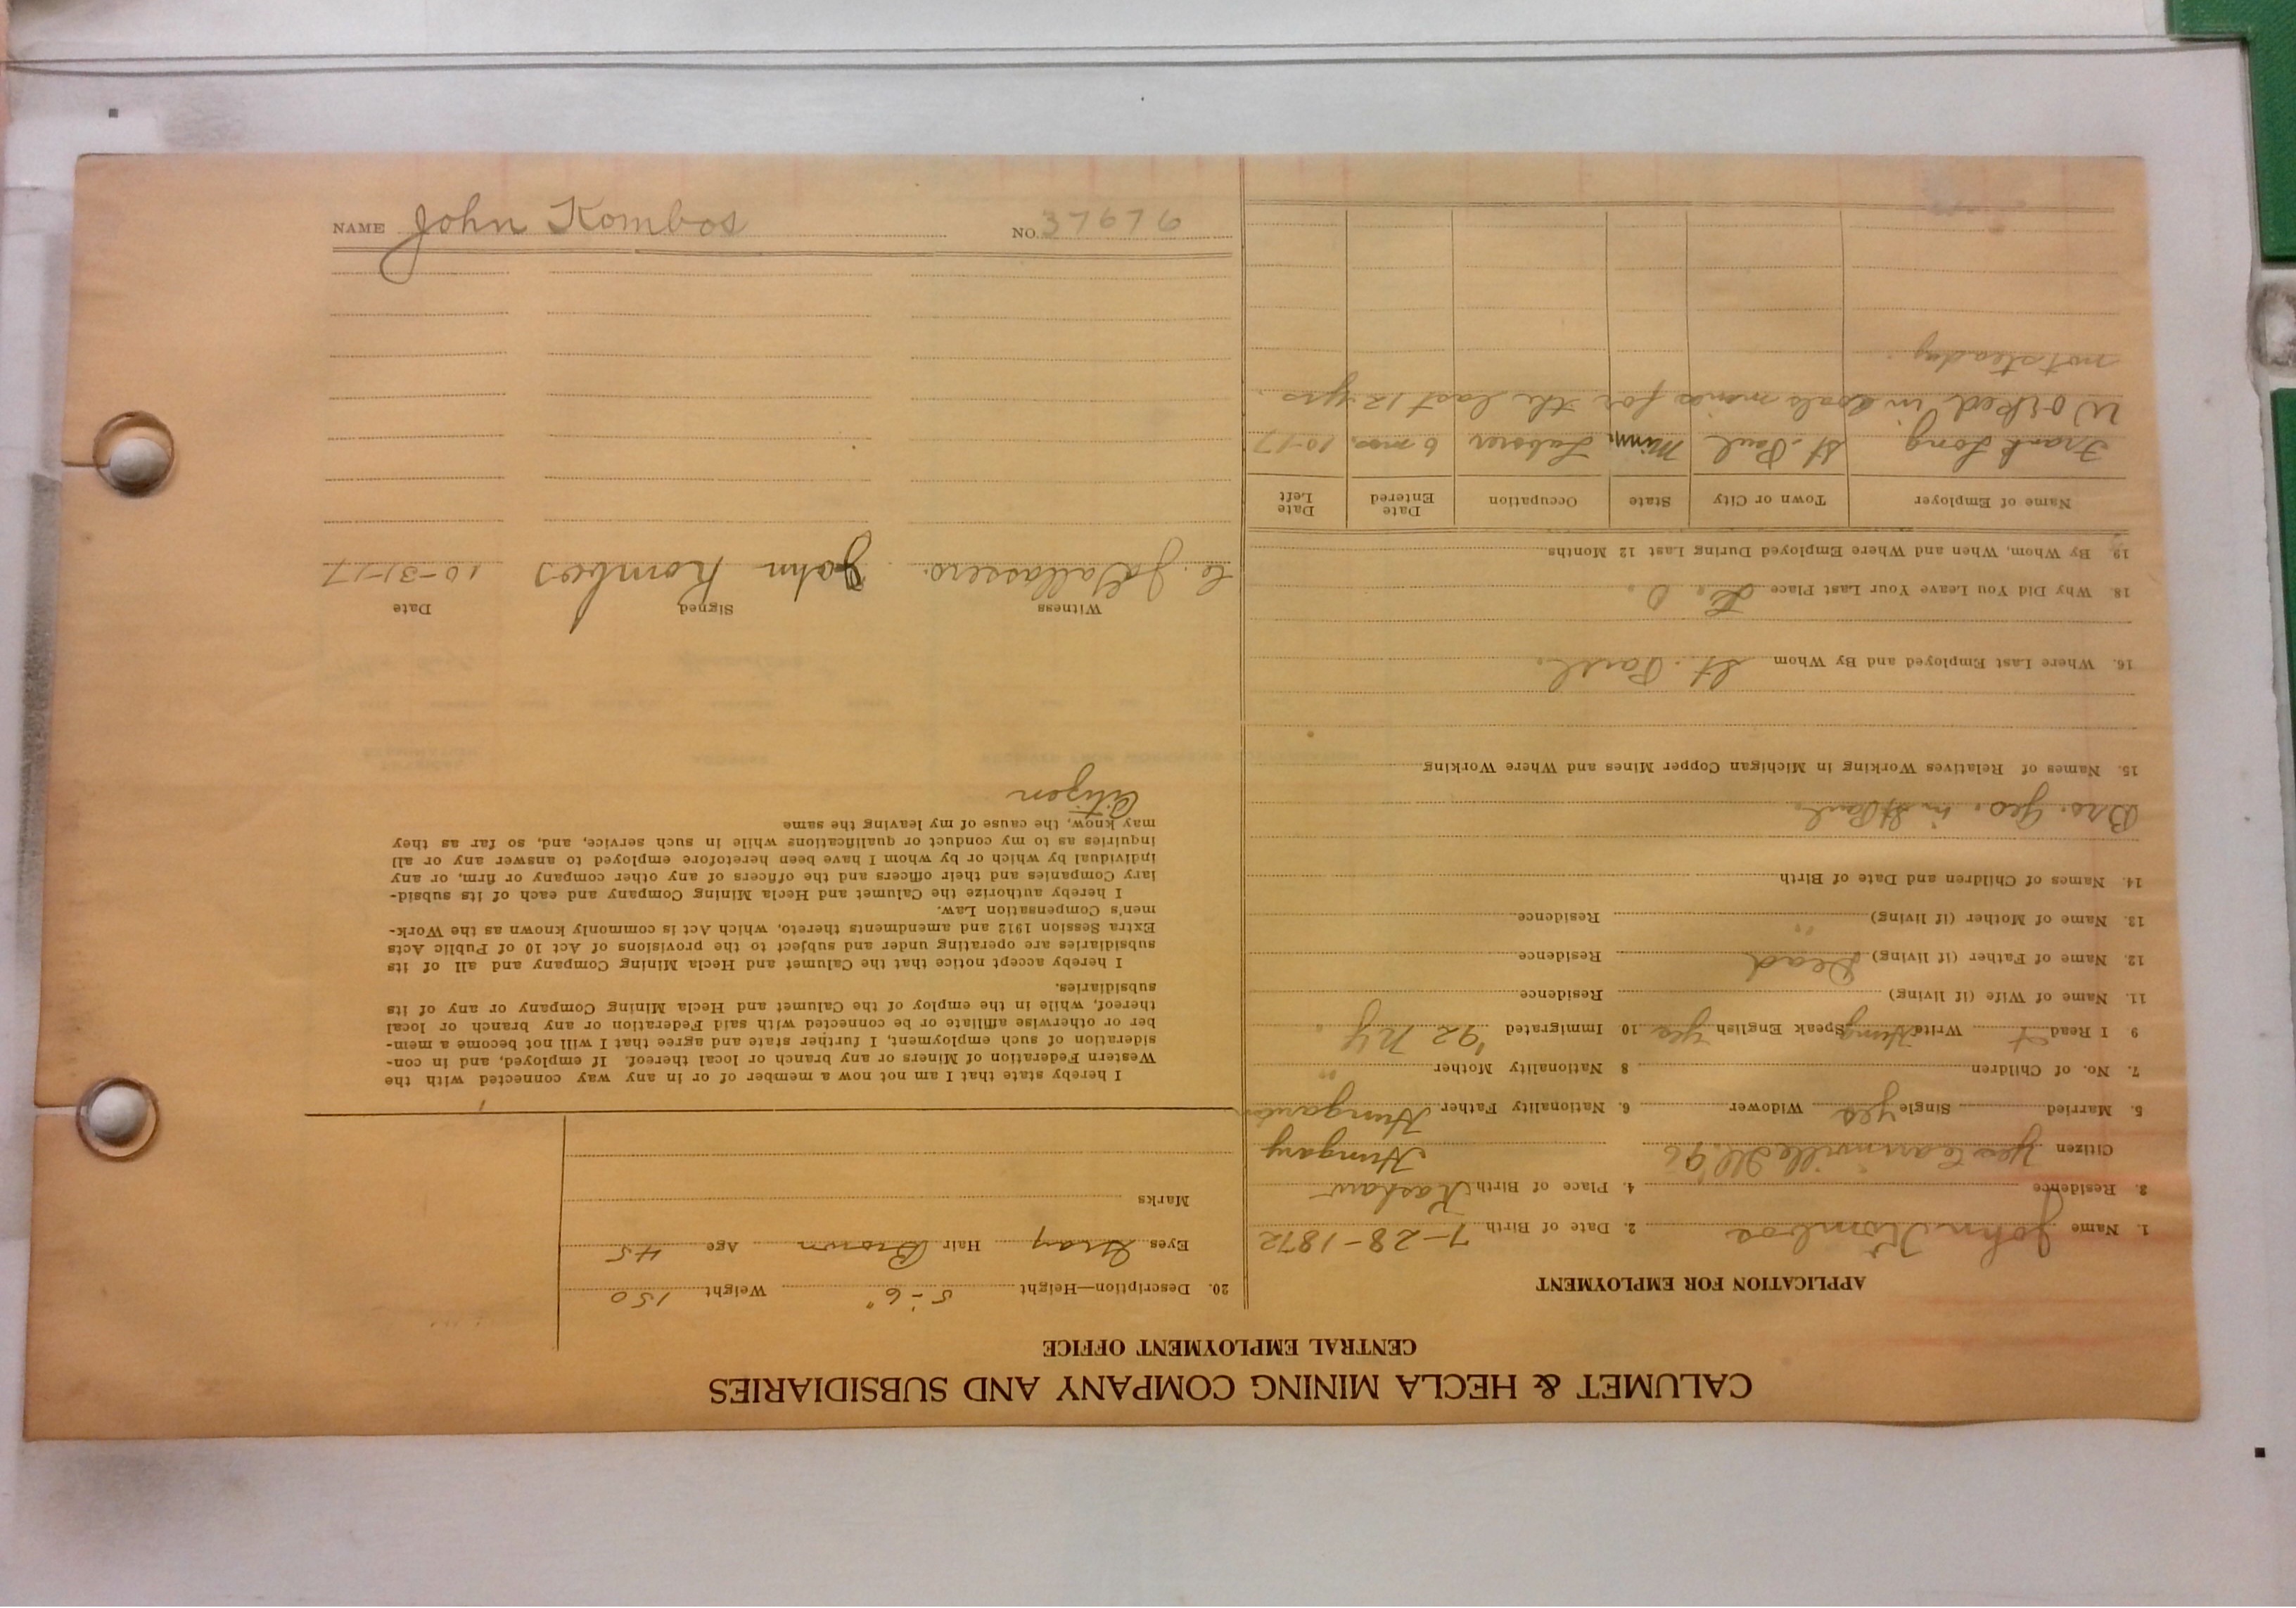 CALUMET & HECLA MINING COMPANY AND SUBSIDIARIES
CENTRAL EMPLOYMENT OFFICE
APPLICATION FOR EMPLOYMENT
1. Name John Kombos 2. Date of Birth 7-28-1872
3. Residence 4. Place of Birth
Citizen Yes Ill. Hungary
5. Married Single yes Widower 6. Nationality Father Hungarian
7. No. of Children 8 Nationality Mother "
9 I Read + Write Hung Speak English yes 10 Immigrated '92 NY
11. Name of Wife (if living) Residence
12. Name of Father (if living) Dead Residence
13. Name of Mother (if living) " Residence
14. Names of Children and Date of Birth
Bro. Geo. in St Paul.
15. Names of Relatives Working in Michigan Copper Mines and Where Working
16. Where Last Employed and By Whom St. Paul.
18. Why Did You Leave Your Last Place
19. By Whom, When and Where Employed During Last 12 Months
Name of Employer Town or City State Occupation Date Entered Date Left
Frank Long. St. Paul Minn. Laborer 6 mos. 10-17
Worked in coals mines for the last 12 yrs.
not steady.
20. Description—Height 5'-6" Weight 150
Eyes Gray Hair Brown Age 45
Marks
I hereby state that I am not now a member of or in any way connected with the
Western Federation of Miners or any branch or local thereof. If employed, and in con-
sideration of such employment, I further state and agree that I will not become a mem-
ber or otherwise affiliate or be connected with said Federation or any branch or local
thereof, while in the employ of the Calumet and Hecla Mining Company or any of its
subsidiaries.
I hereby accept notice that the Calumet and Hecla Mining Company and all of its
subsidiaries are operating under and subject to the provisions of Act 10 of Public Acts
Extra Session 1912 and amendments thereto, which Act is commonly known as the Work-
men's Compensation Law.
I hereby authorize the Calumet and Hecla Mining Company and each of its subsid-
iary Companies and their officers and the officers of any other company or firm, or any
individual by which or by whom I have been heretofore employed to answer any or all
inquiries as to my conduct or qualifications while in such service, and, so far as they
may know, the cause of my leaving the same
Citizen
Witness Signed Date
John Kombos 10-31-17
NAME John Kombos NO. 37676